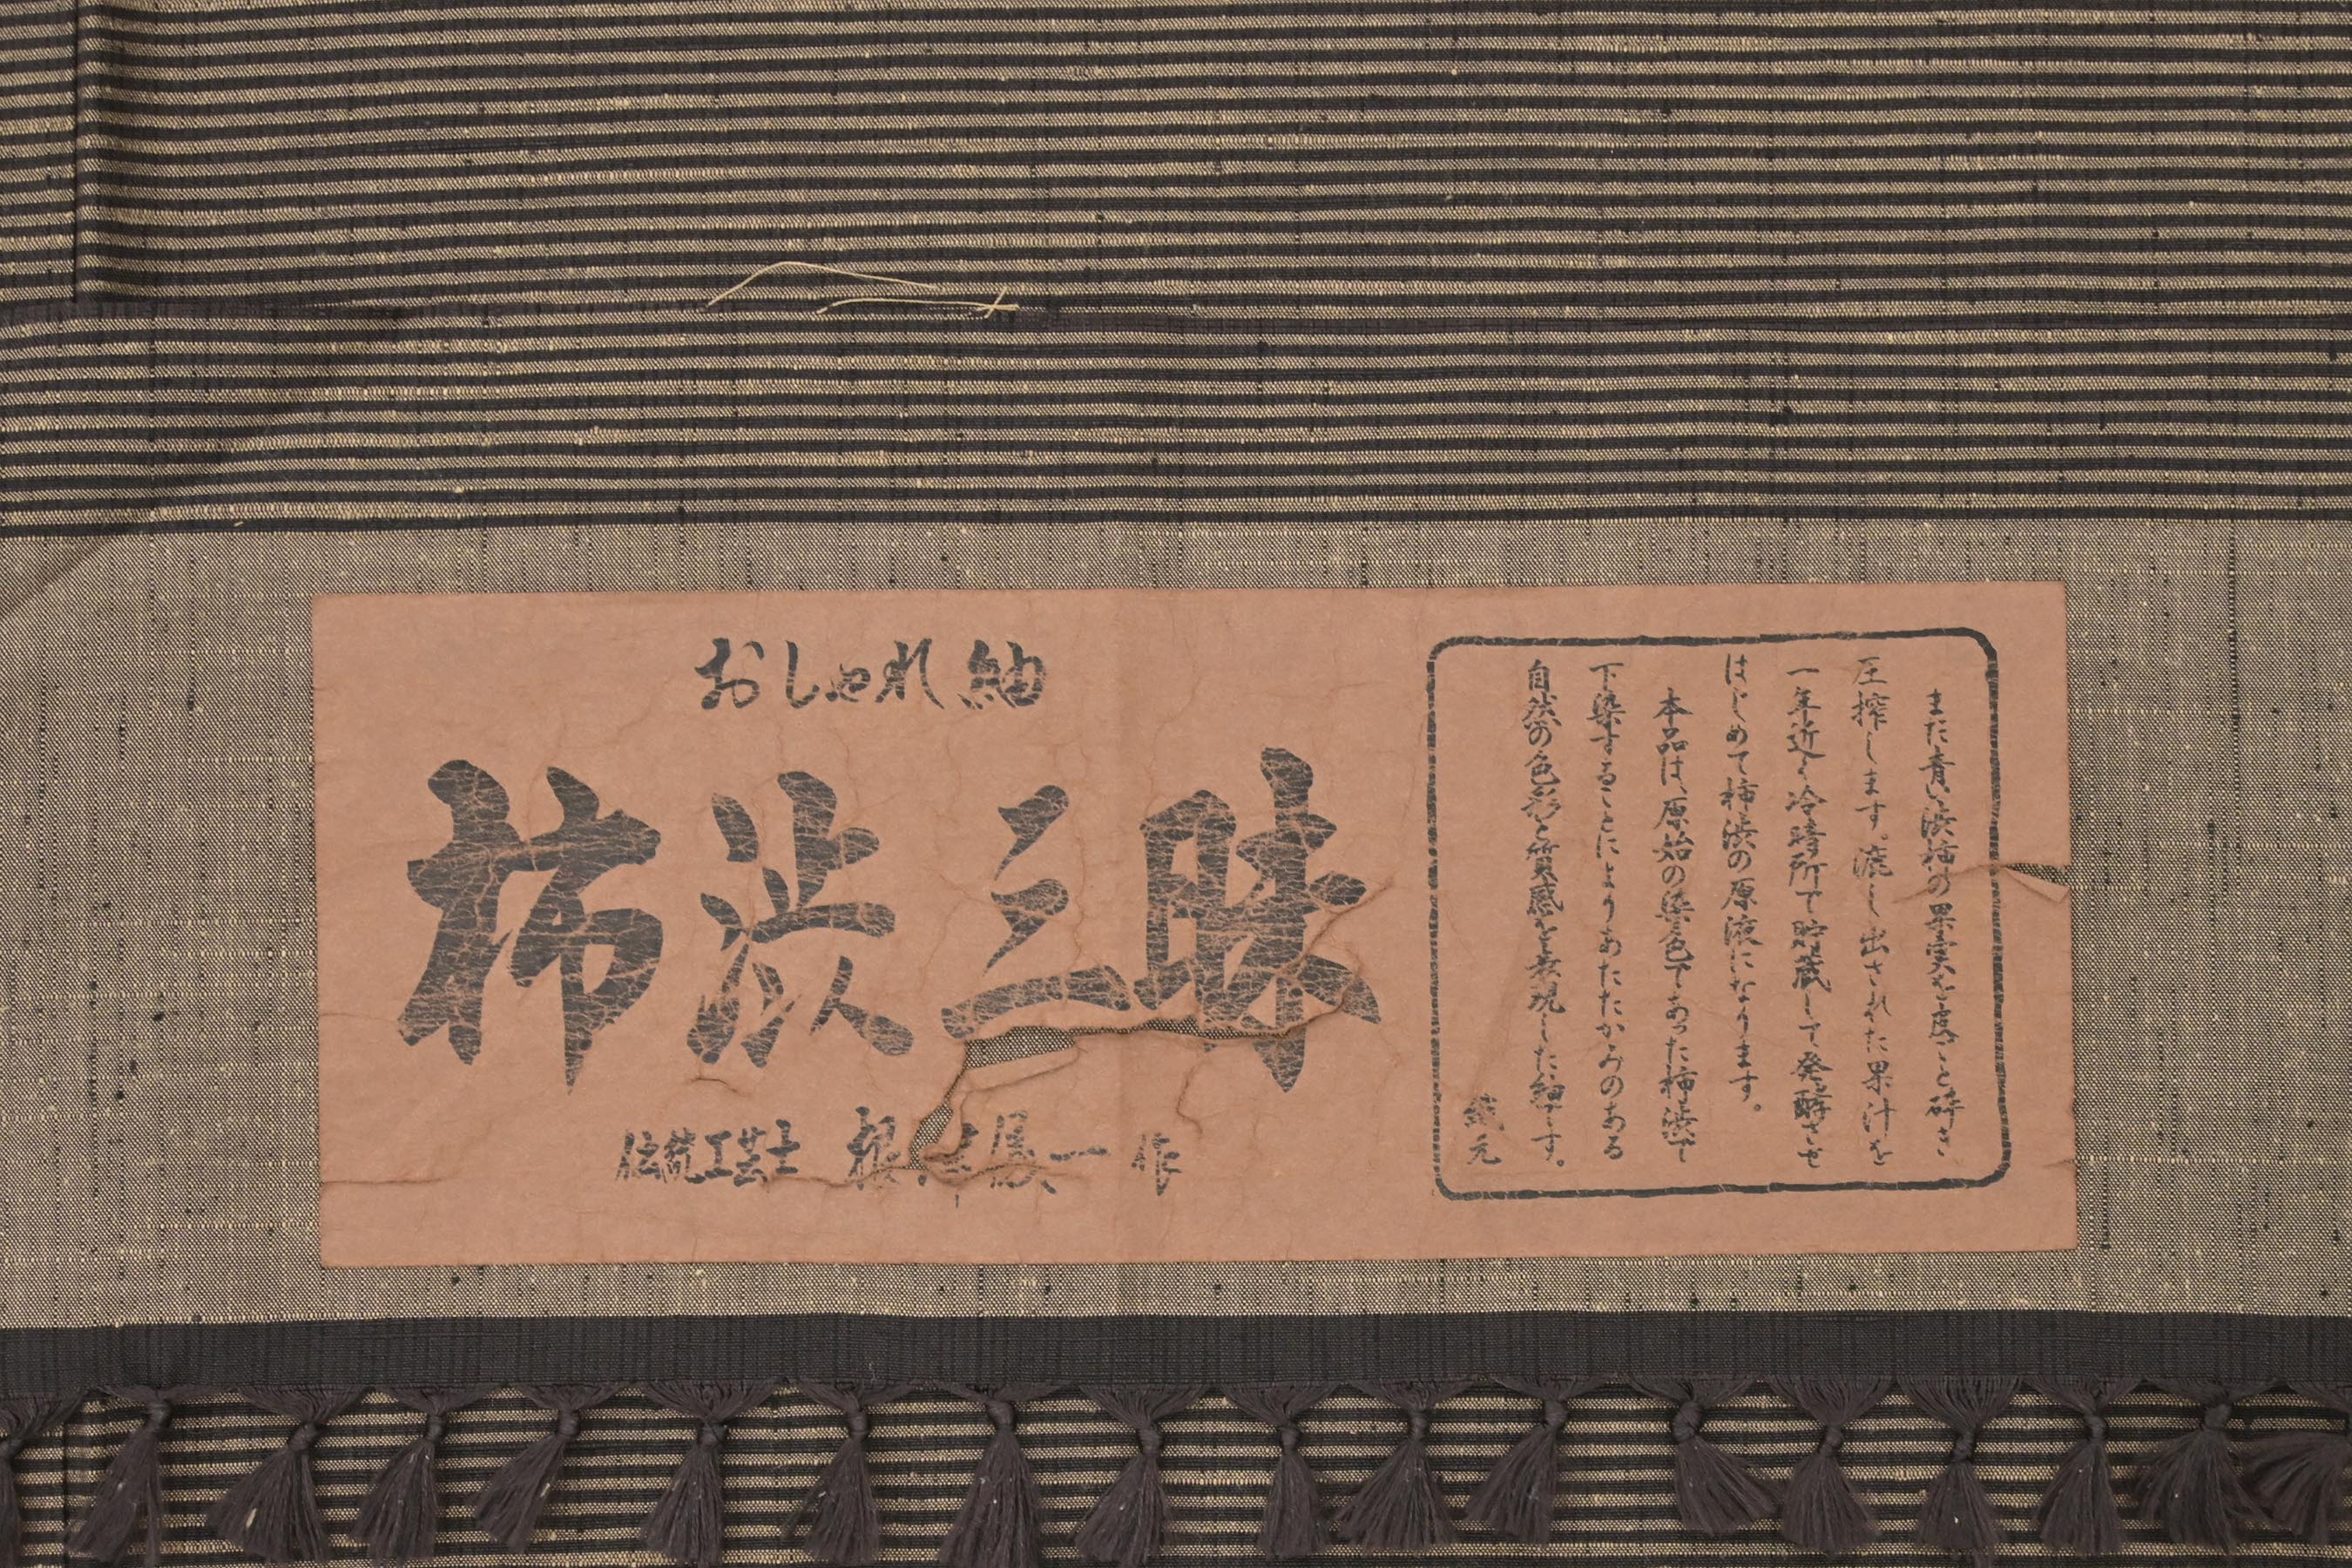 おしゃれ紬
柿渋三昧
伝統工芸士 根津原一作
まだ青い渋柿の果実を落とし砕き
圧搾します。漉し出された果汁を
一年近く冷暗所で貯蔵して発酵させ
はじめて柿渋の原液になります。
本品は、原始の染色であった柿渋で
下染することによりあたたかみのある
自然の色彩と質感を表現した紬です。
織元